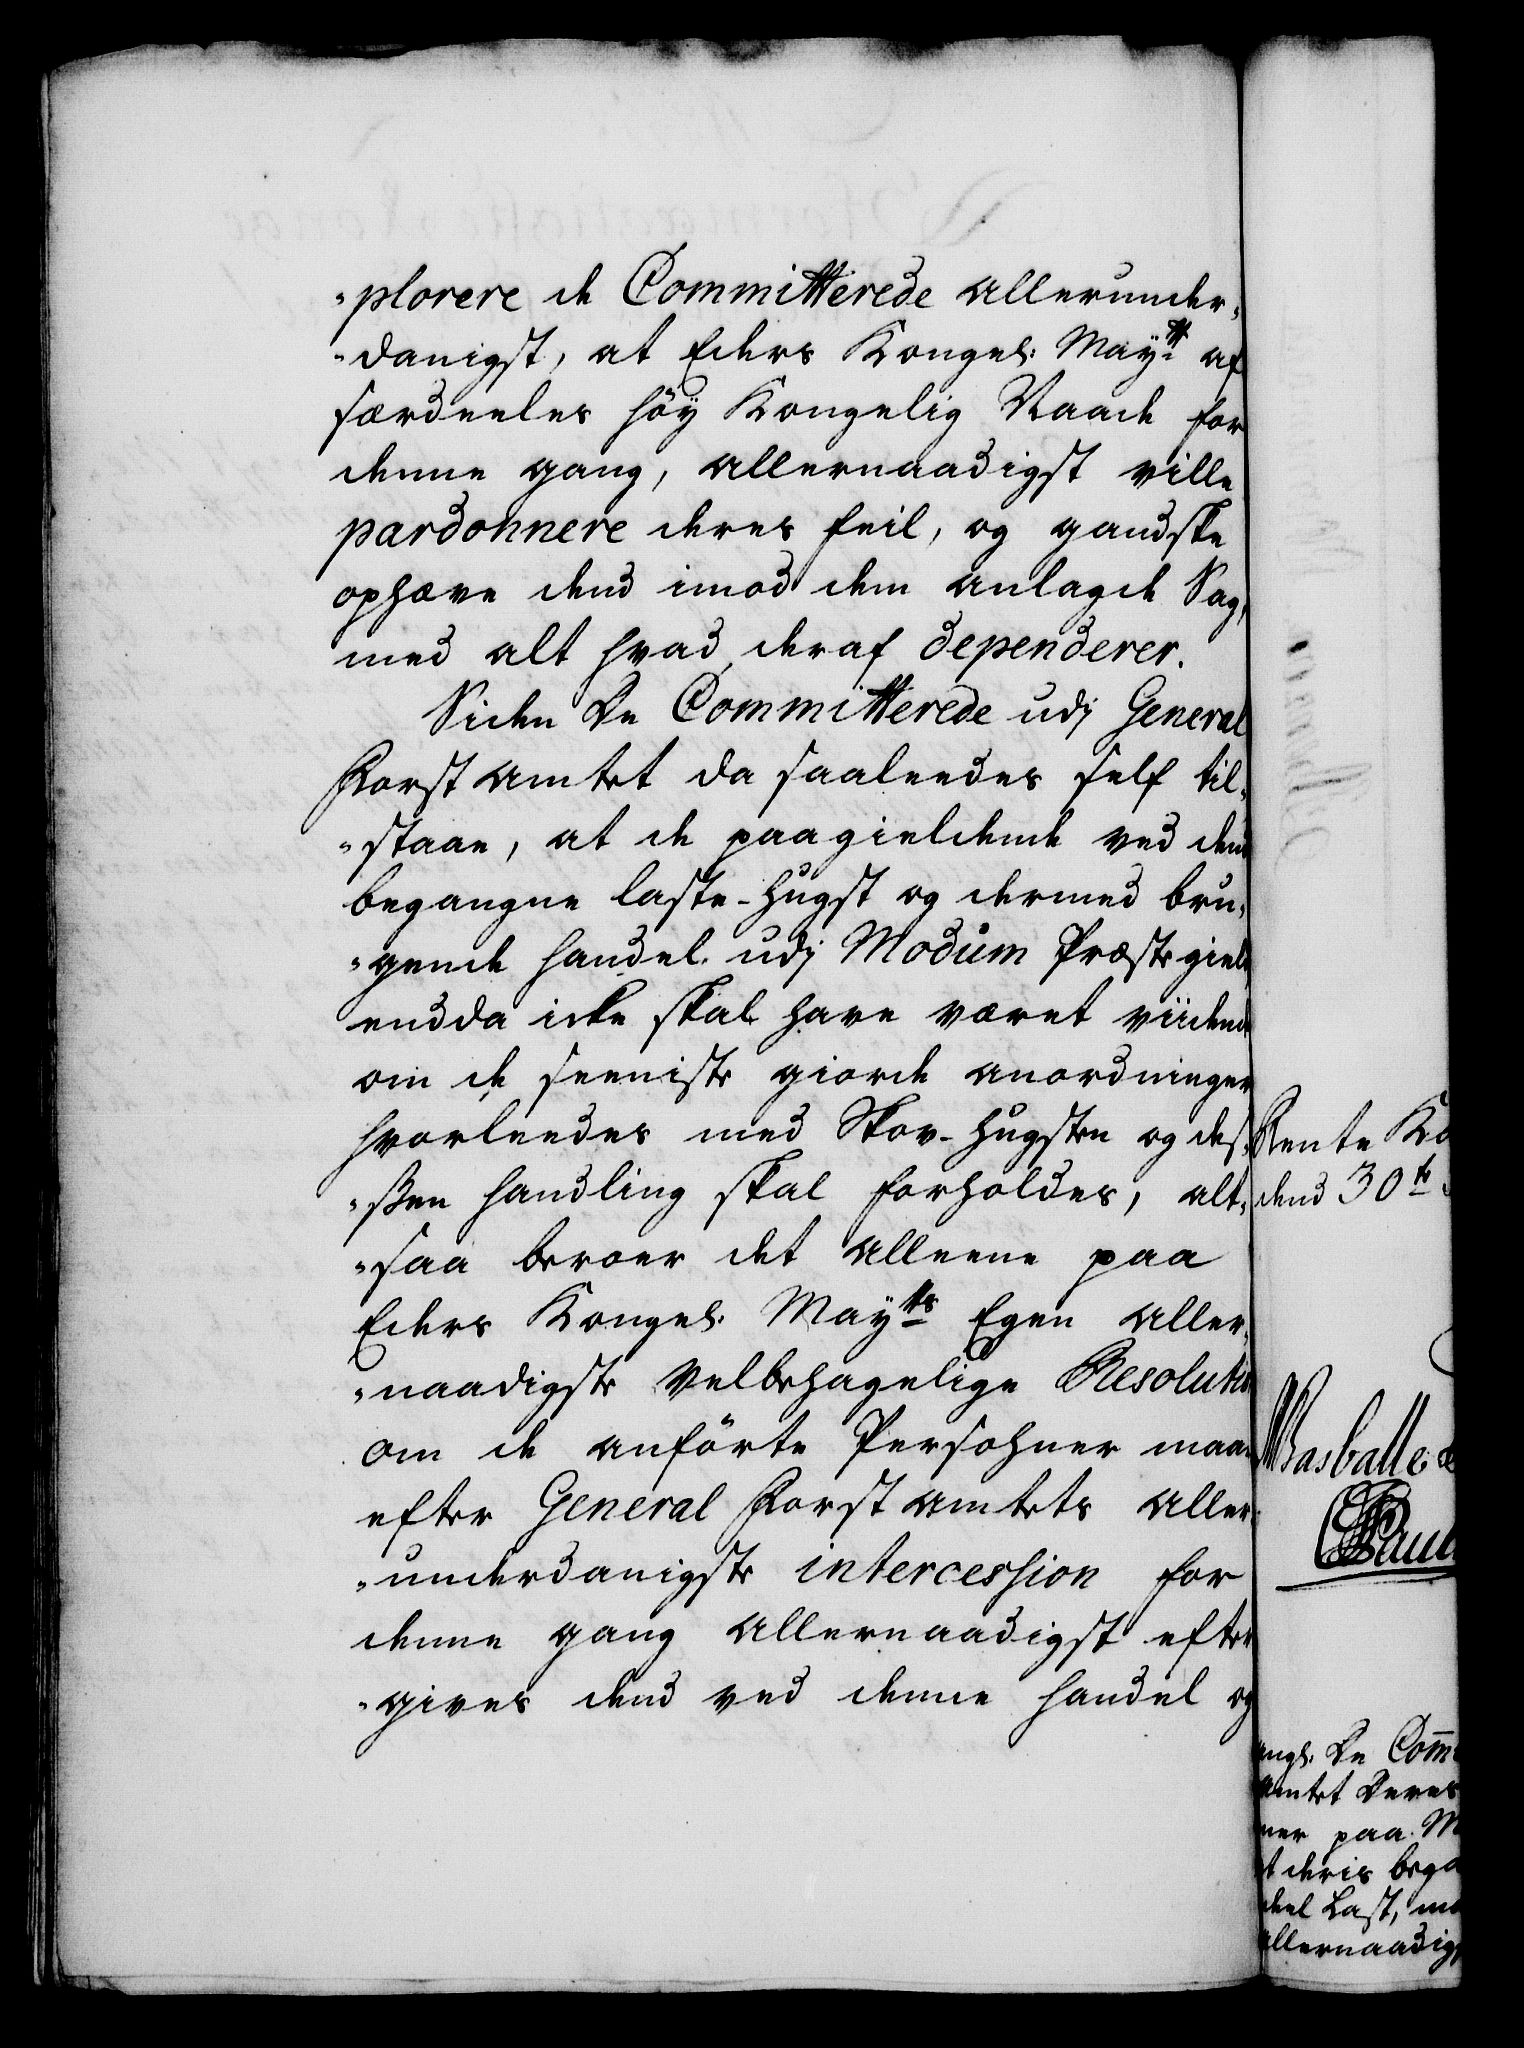 -plorere de Committerede allerunder-
-danigst, at Eders Kongel: Maytt af
særdeeles höÿ Kongelig Naade for
denne gang, allernaadigst ville
pardonnere deres feil, og gandske
ophæve dend imod dem anlagde Sag,
med alt hvad deraf dependerer.
Siden De Committerede udj General
Forst Amtet da saaleedes self til-
-staae, at de paagieldende ved den
begangne laste-Hugst og dermed bru-
-gende handel udj Modum Præstegield
endda icke skal have været viidende
om de seeniste giorde anordninger
hvorleedes med Skov-Hugsten og des-
-ßen handling skal forholdes, alt-
-saa beroer det alleene paa
Eders Kongel. Maytts Egen aller-
-naadigste velbehagelige Resolution
om de anförte Persohner maae
efter General Forst Amtets aller-
-underdanigste intercession for
denne gang allernaadigst efter
-gives dend ved denne handel og
Rente Ka
dend 30te
Basballe
Paul
angl. De Comm
Amtet Deres
ner paa M
t deris bega
deel Last, me
allernaadigs